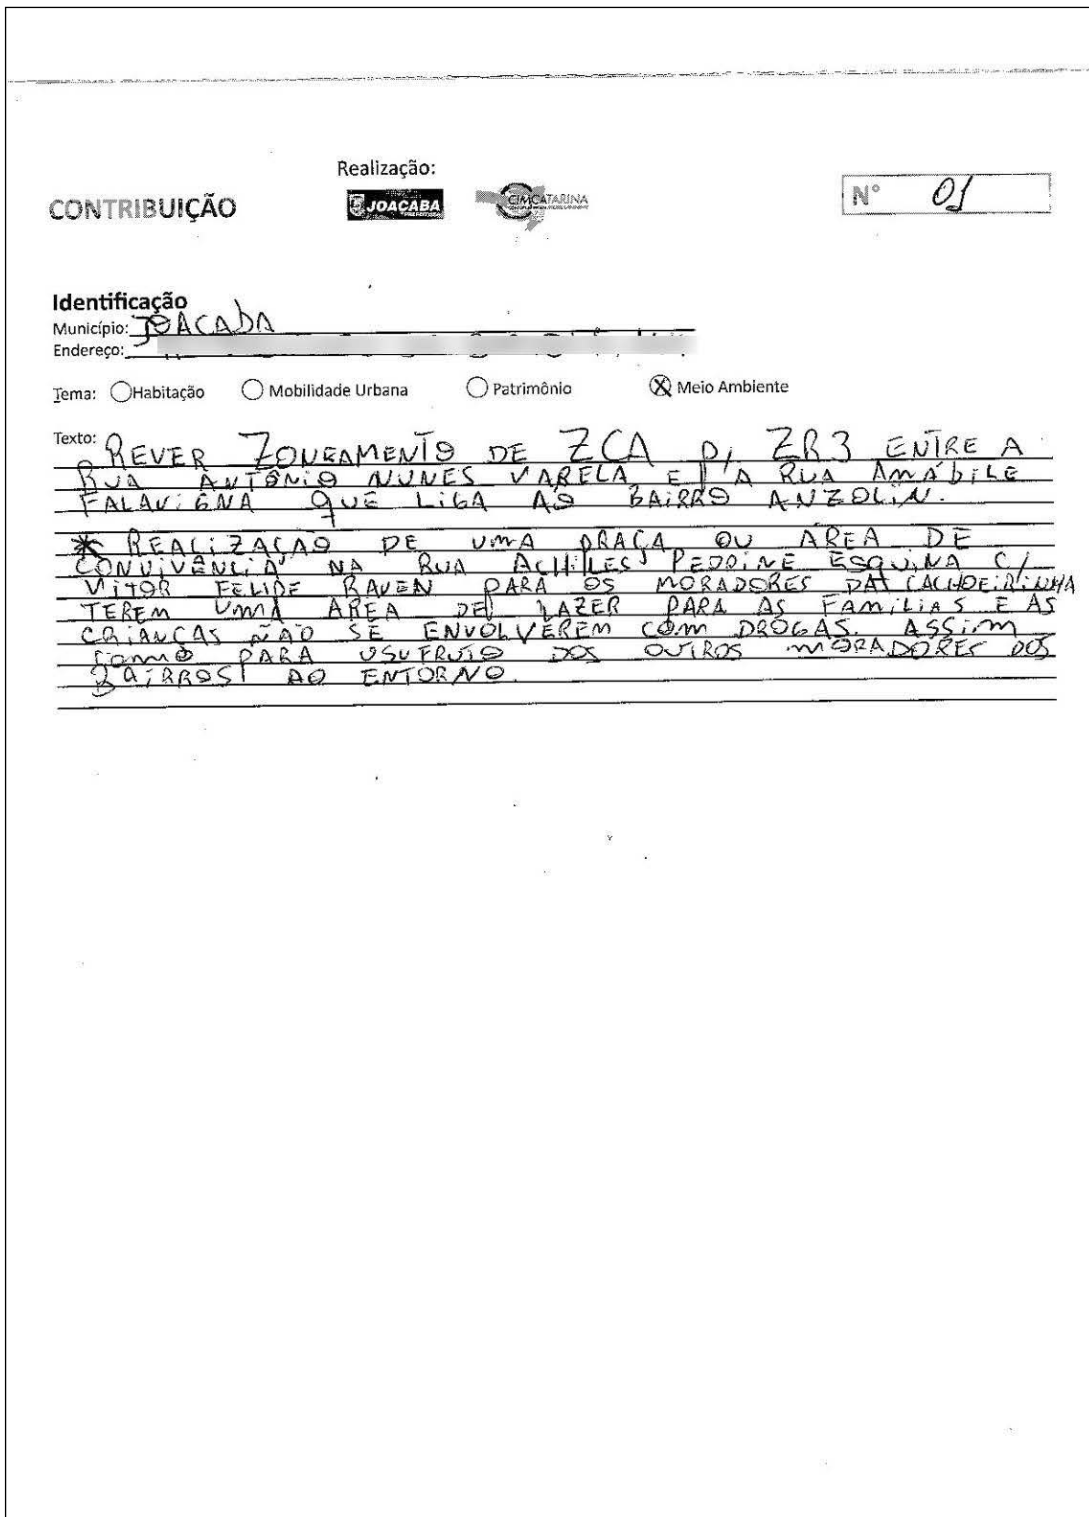 Realização:
CONTRIBUIÇÃO
JOAÇABA
CIMCATARINA
N° 01
Identificação
Município: JOACABA
Endereço:
Tema: Habitação Mobilidade Urbana Patrimônio Meio Ambiente
Texto: REVER ZONEAMENTO DE ZCA P/ ZR3 ENTRE A
RUA ANTÔNIO NUNES VARELA E A RUA AMÁBILE
FALAVIGNA QUE LIGA AO BAIRRO ANZOLIN.
* REALIZAÇÃO DE UMA PRAÇA OU ÁREA DE
CONVIVÊNCIA NA RUA ACHILLES PEDRINE ESQUINA C/
VITOR FELIPE RAUEN PARA OS MORADORES DA CACHOEIRINHA
TEREM UMA ÁREA DE LAZER PARA AS FAMÍLIAS E AS
CRIANÇAS NÃO SE ENVOLVEREM COM DROGAS. ASSIM
COMO PARA USUFRUTO DOS OUTROS MORADORES DOS
BAIRROS AO ENTORNO.